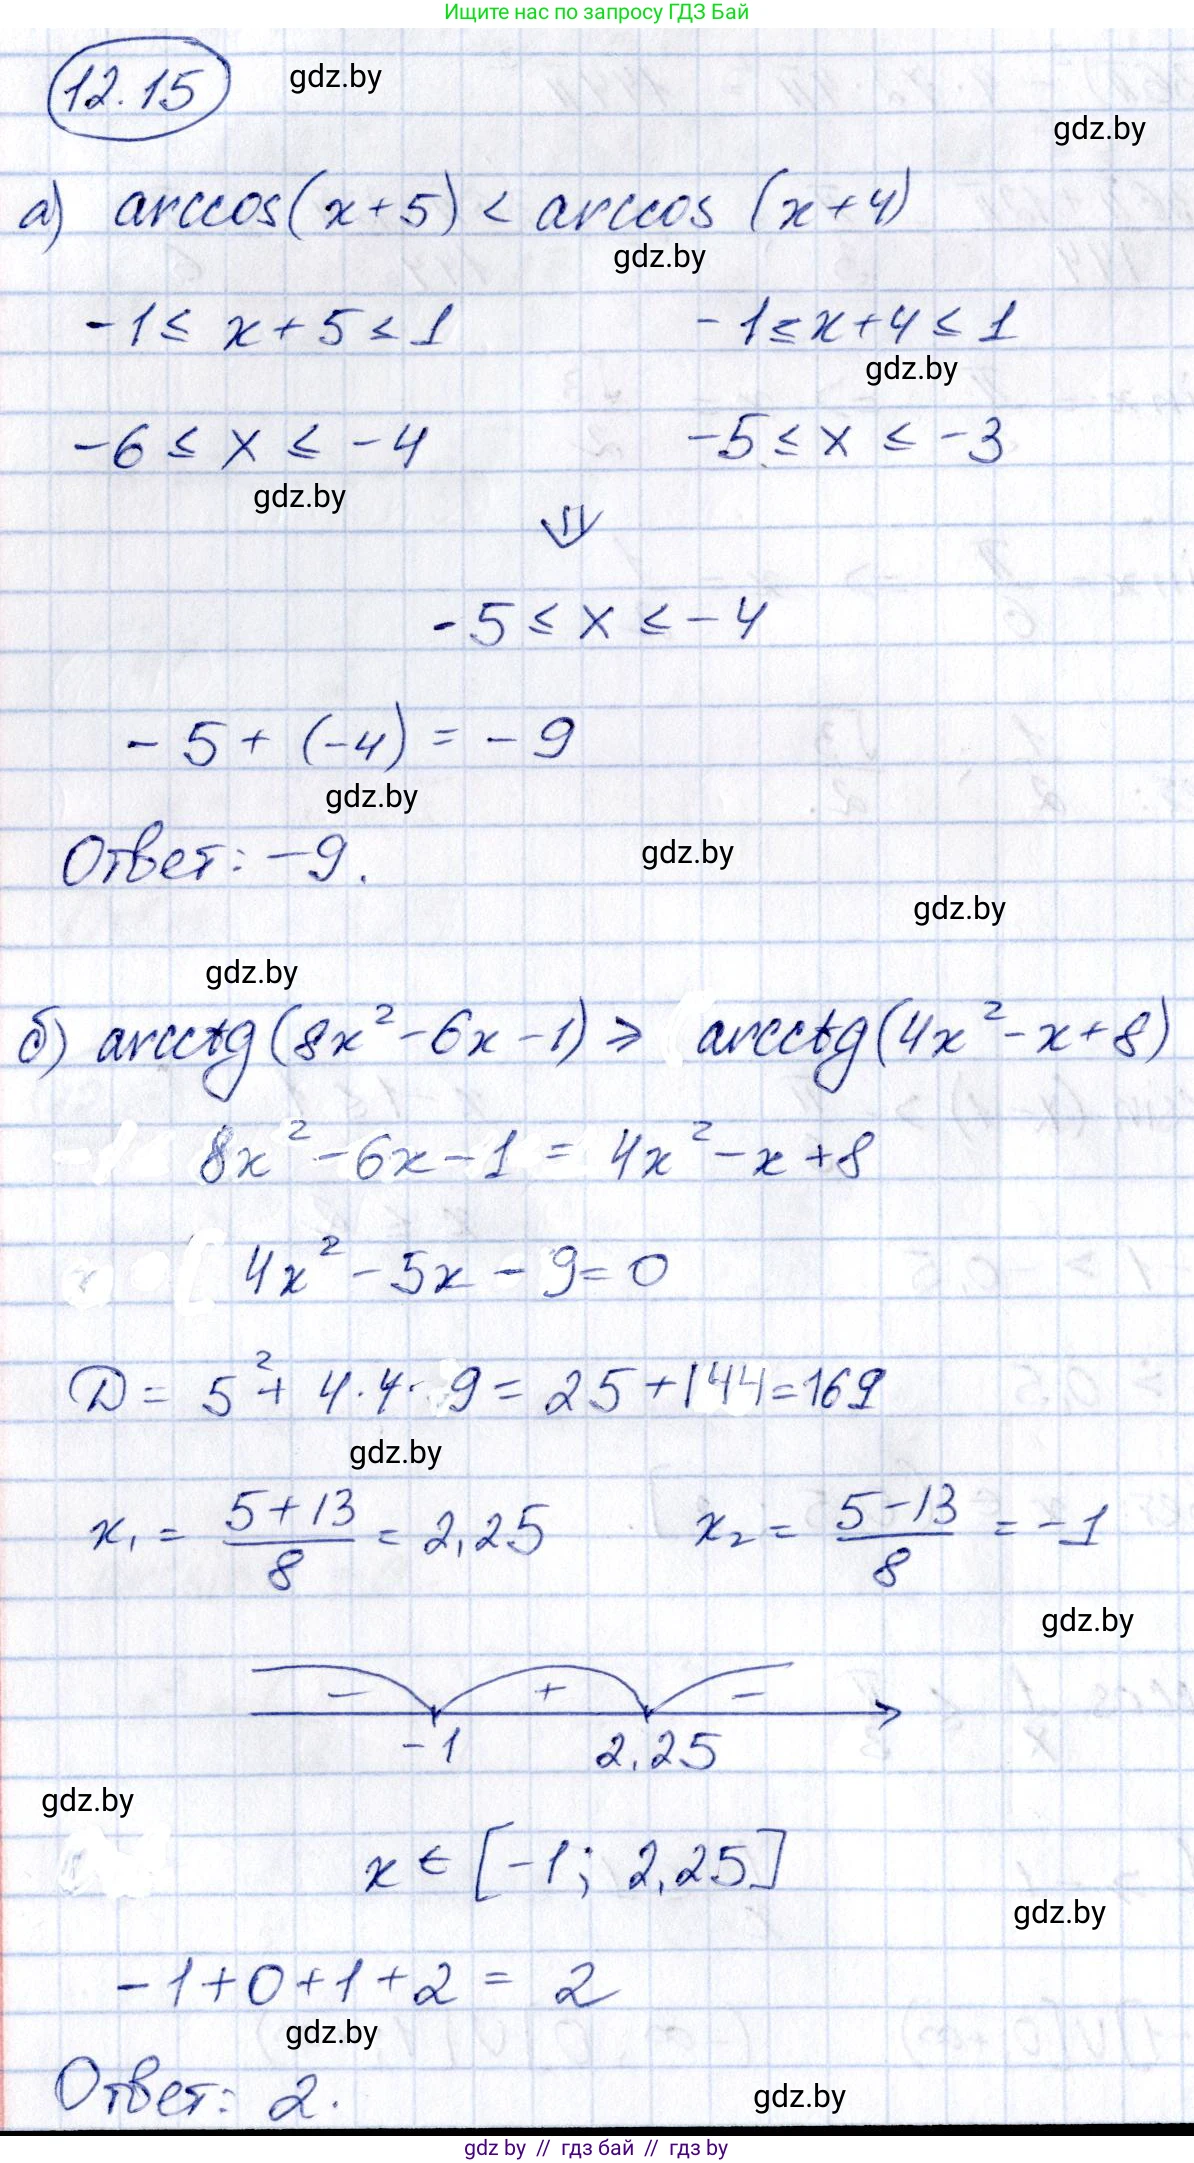 Ищите нас по запросу ГДЗ Бай
12.15 gdz.by
gdz.by
а) arccos(x+5) < arccos (x+4)
gdz.by
-1 ≤ x+5 ≤ 1 -1 ≤ x+4 ≤ 1
gdz.by
-6 ≤ x ≤ -4 -5 ≤ x ≤ -3
gdz.by
⇓
-5 ≤ x ≤ -4
-5 + (-4) = -9
gdz.by
Ответ: -9.
gdz.by
gdz.by
gdz.by
б) arcctg(8x²-6x-1) ⩾ arcctg(4x²-x+8)
8x²-6x-1 = 4x²-x+8
4x²-5x-9=0
D = 5²+ 4·4·9 = 25+144=169
gdz.by
x₁ = (5+13)/8 = 2,25 x₂ = (5-13)/8 = -1
gdz.by
- + -
-1 2,25
gdz.by
x ∈ [-1; 2,25]
gdz.by
-1+0+1+2 = 2
gdz.by
Ответ: 2.
gdz.by
gdz by // гдз бай // гдз by